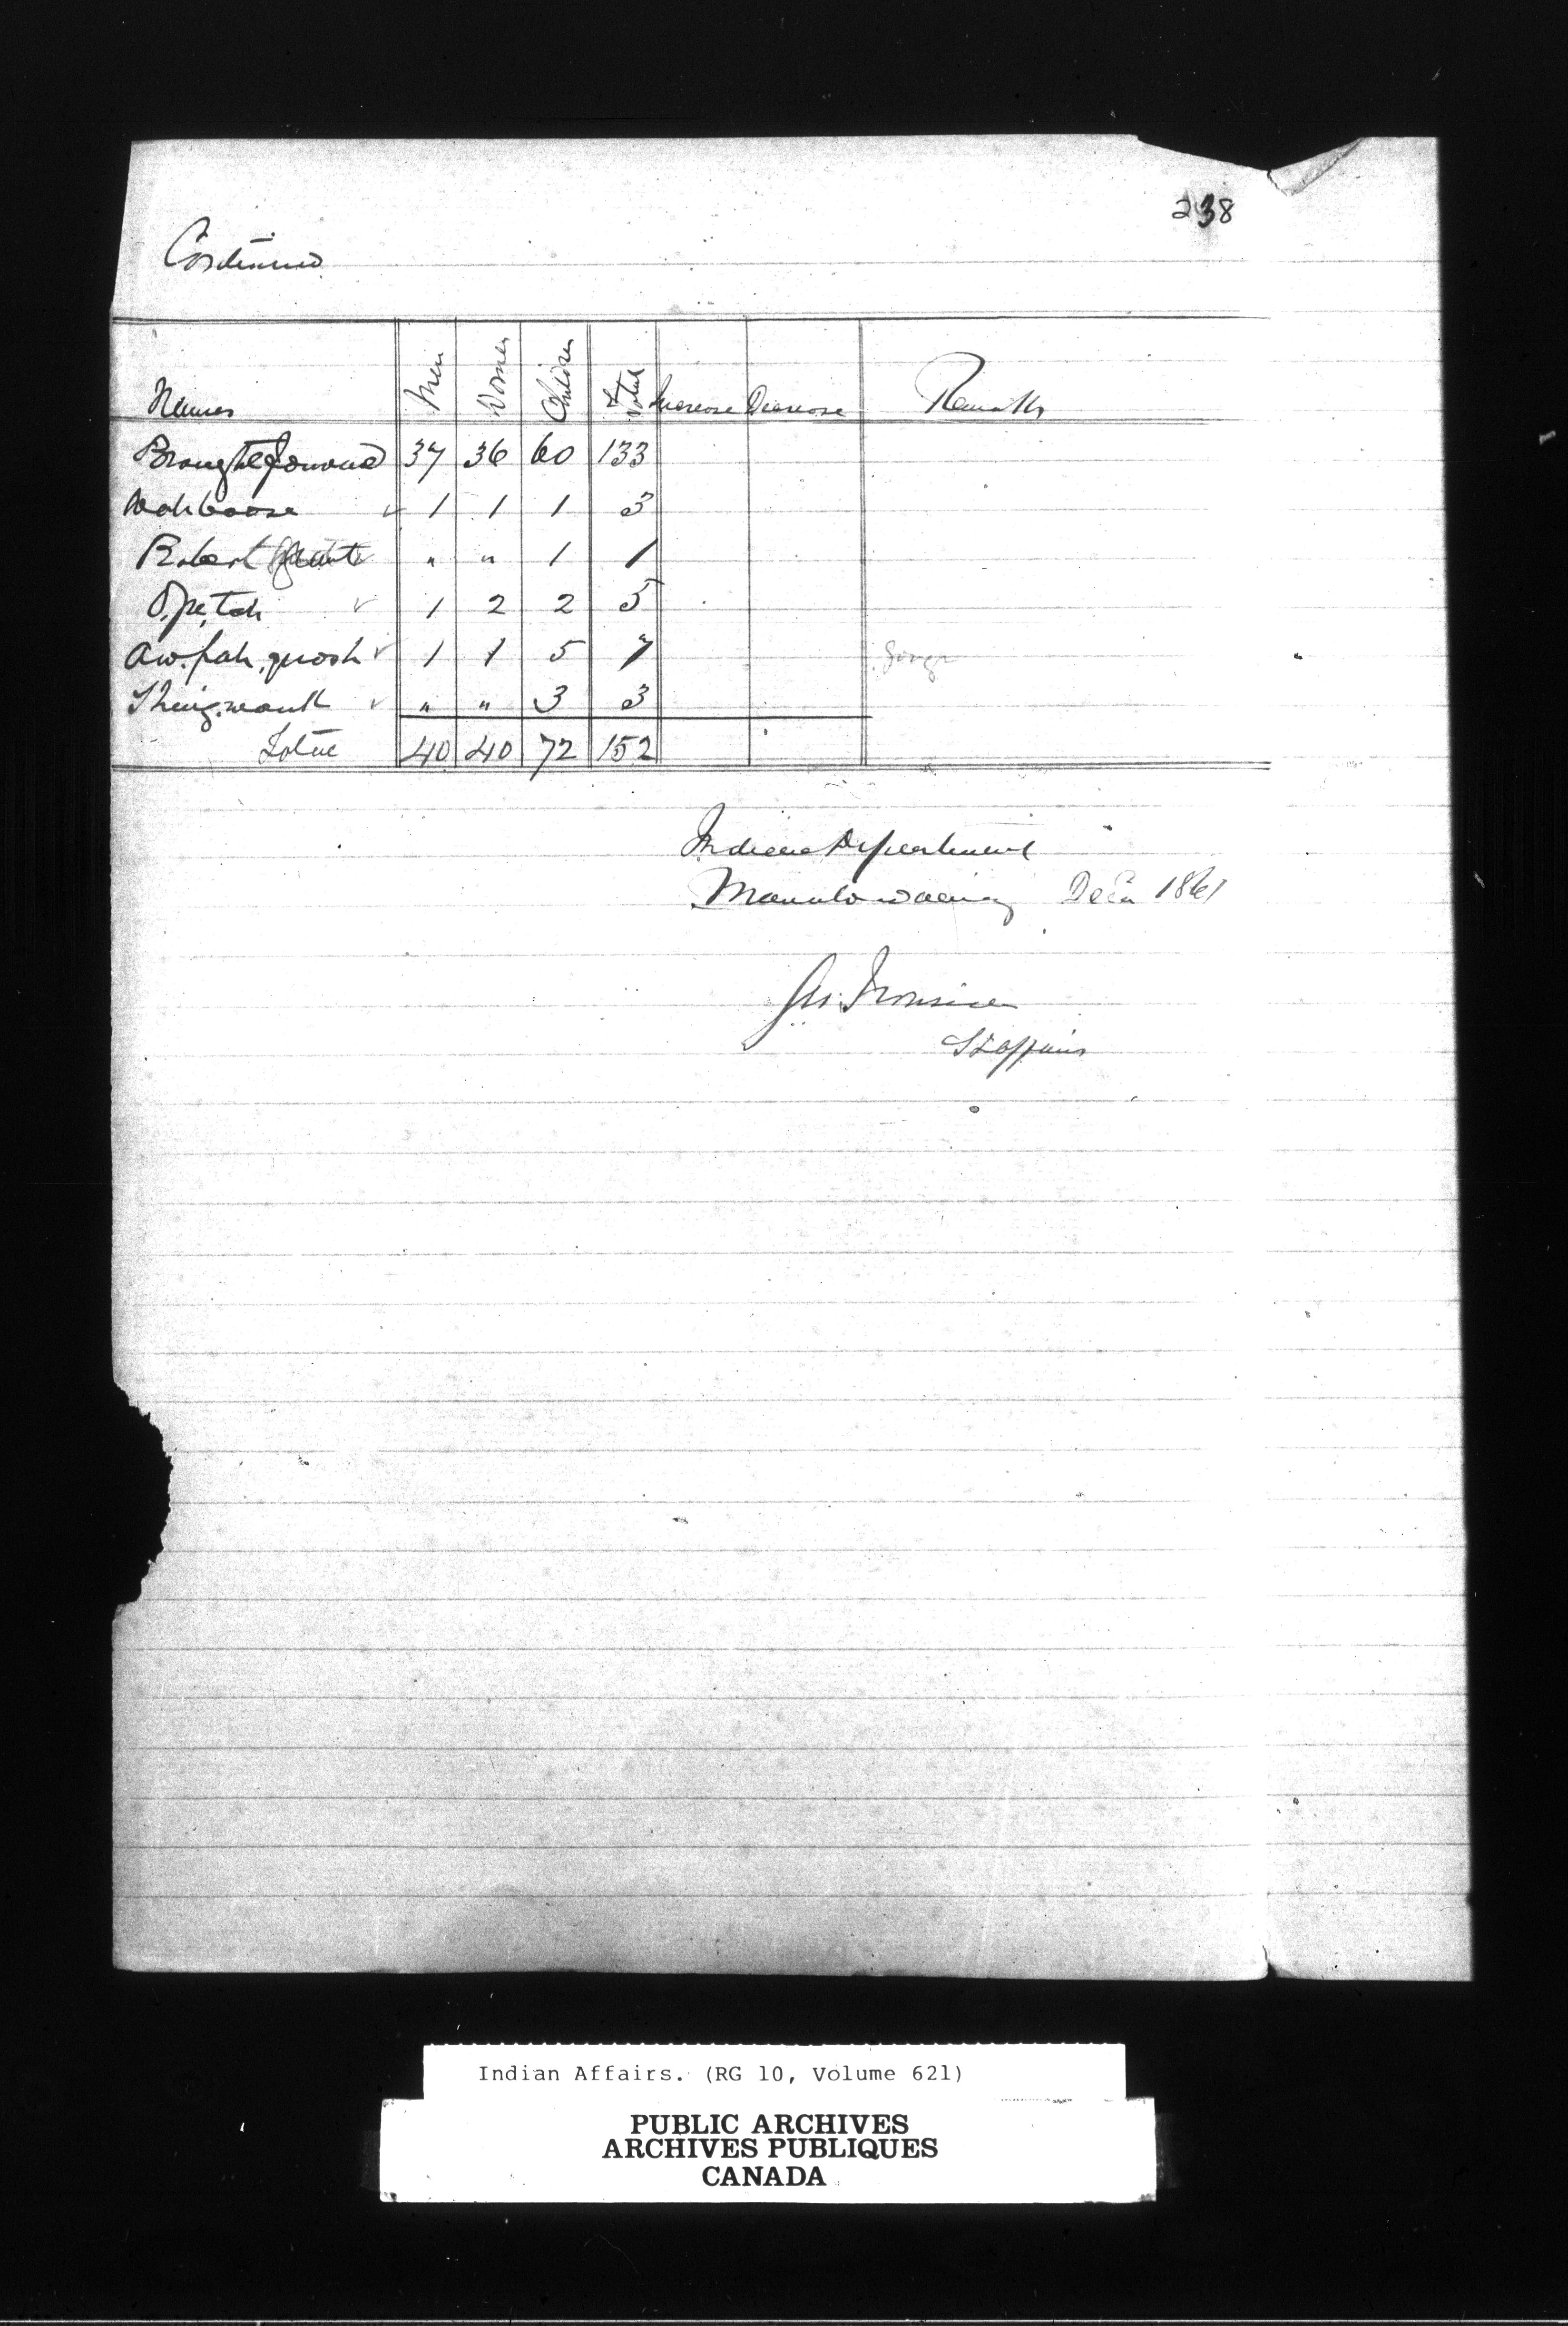 238
Continued
Names Men Women Children Total Increase Decrease Remarks
Brought forward 37 36 60 133
Wahboose ✓ 1 1 1 3
Robert " " 1 1
O,pe,tah ✓ 1 2 2 5
Aw.pah,quosh ✓ 1 1 5 7
Shing.wauk ✓ " " 3 3
Total 40 40 72 152
Indian Department
Manitowaning Decr 1861
Geo. Ironside
Indian Affairs. (RG 10, Volume 621)
PUBLIC ARCHIVES
ARCHIVES PUBLIQUES
CANADA